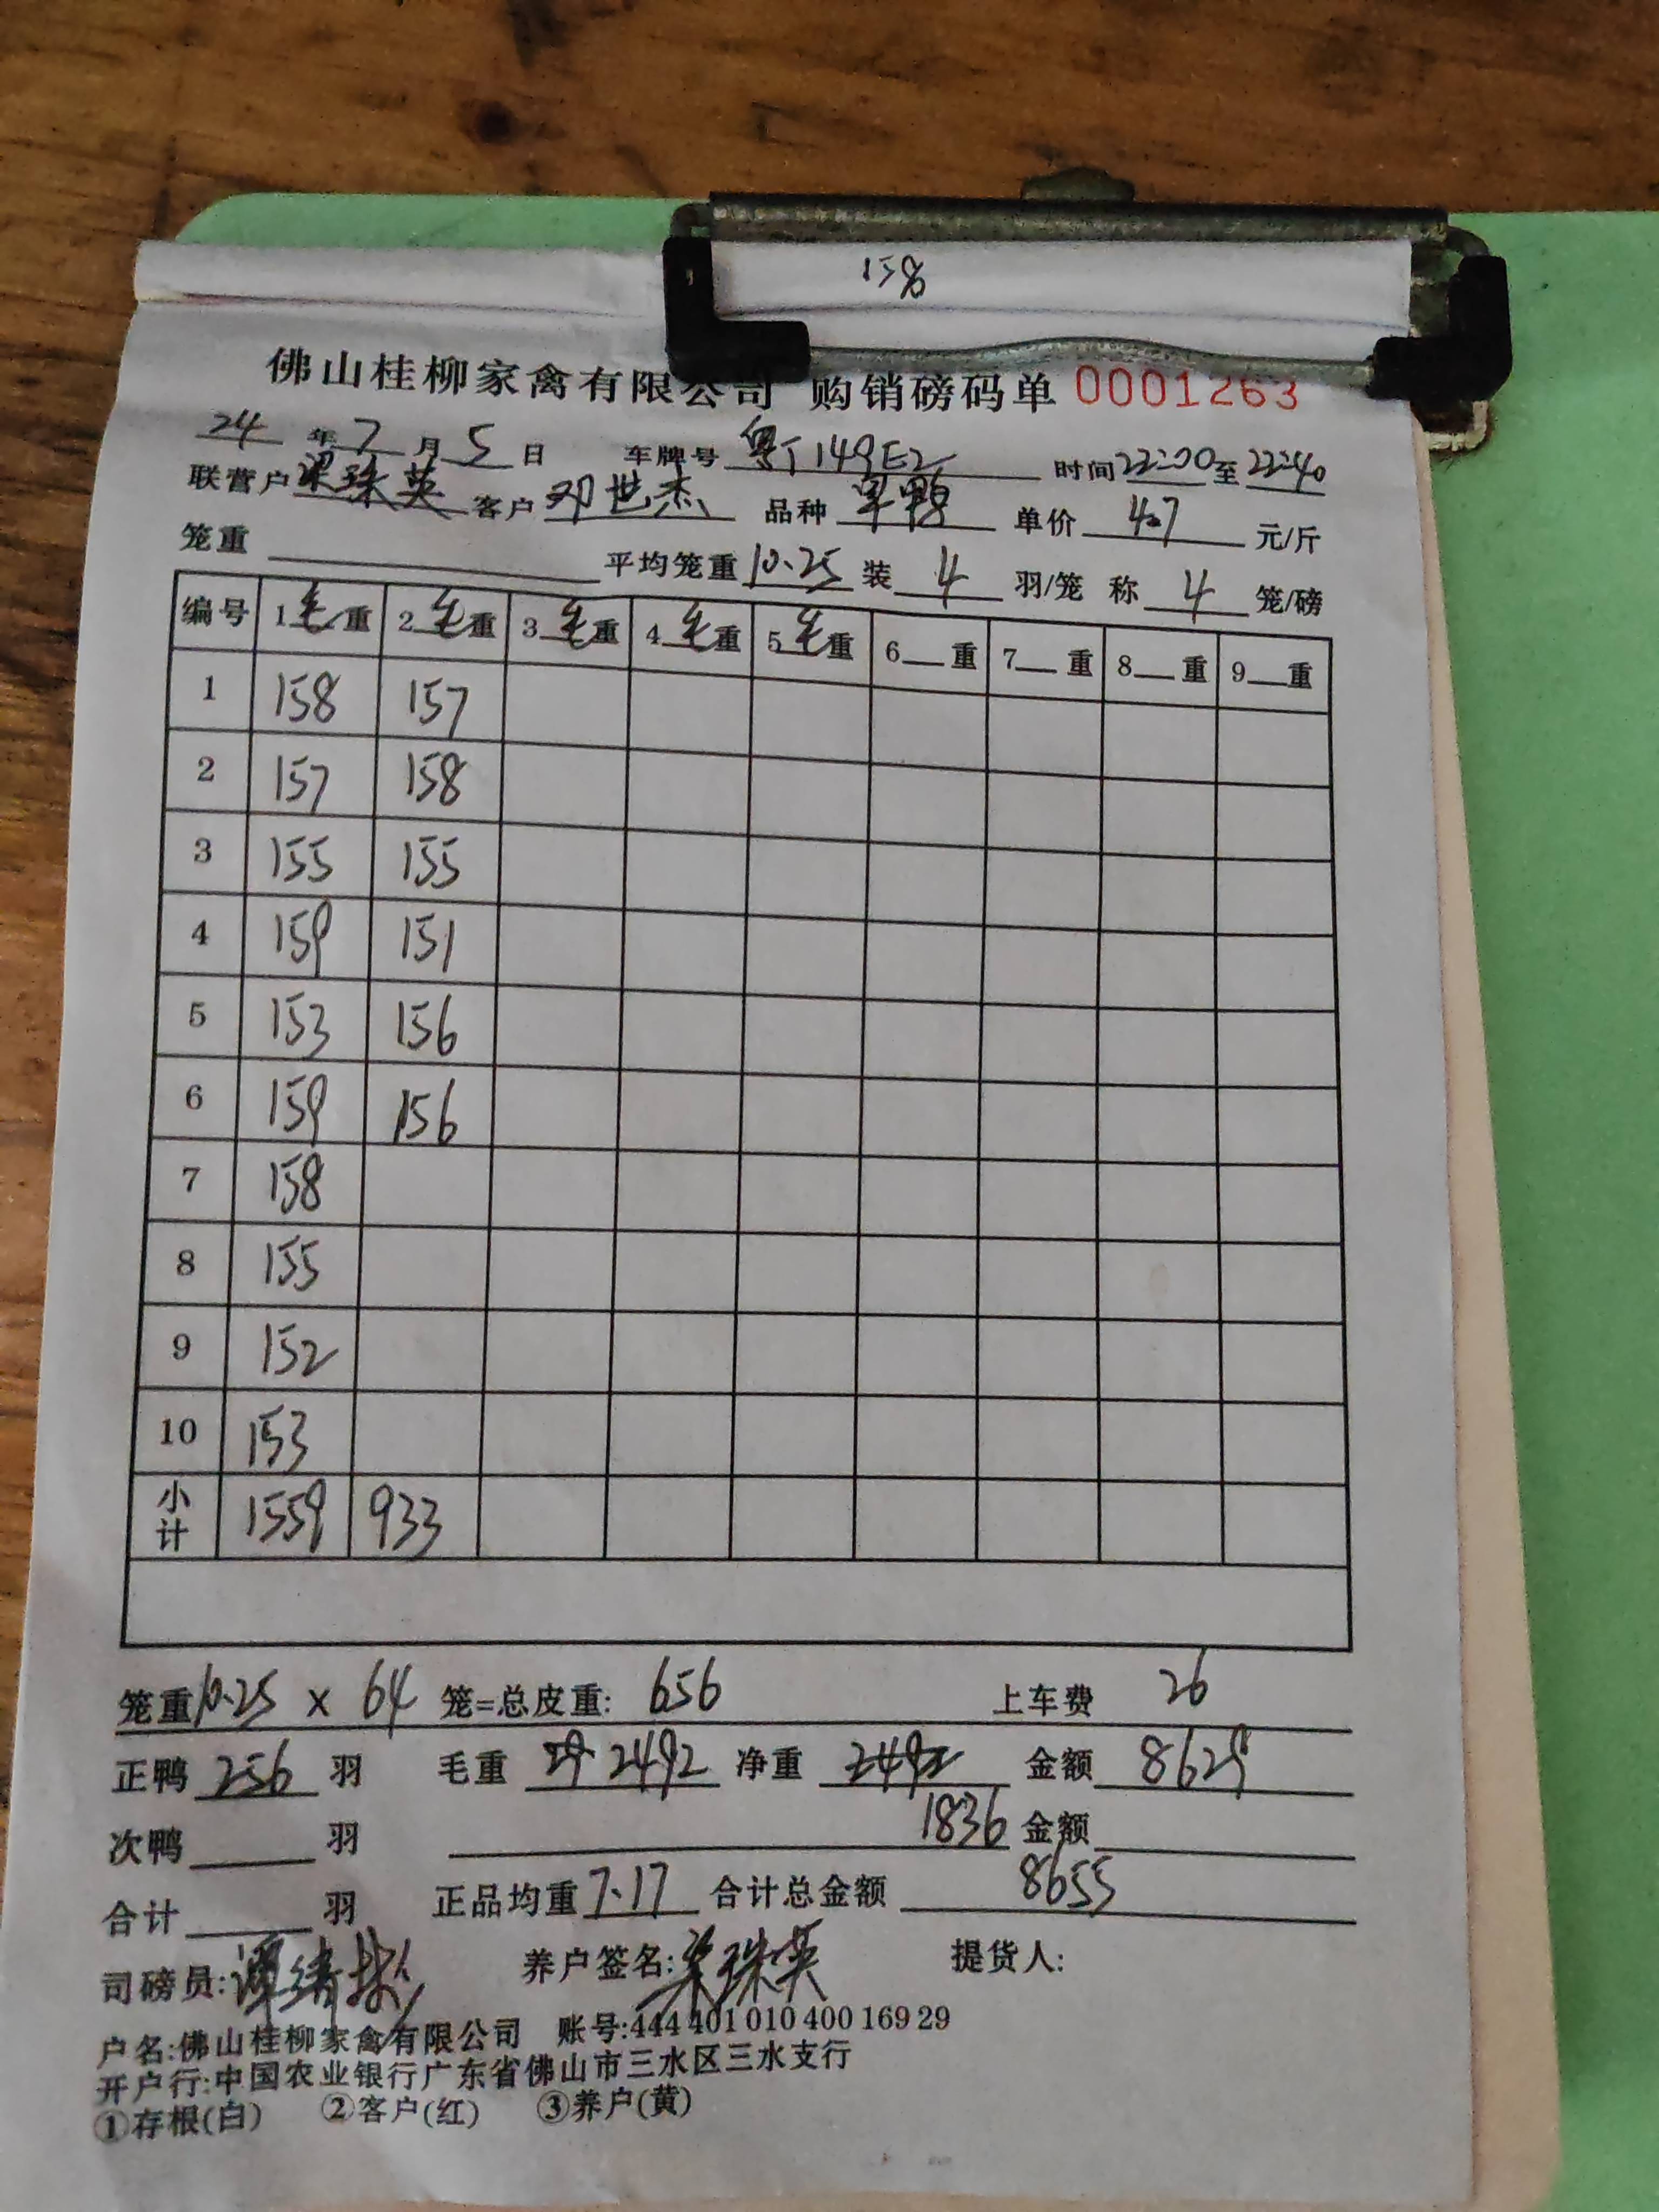 158
佛山桂柳家禽有限公司 购销磅码单 0001263
24年7月5日 车牌号 粤J149E2 时间22:00至22:40
联营户梁珠英 客户邓世杰 品种 单价 4.7 元/斤
笼重 平均笼重10.25 装 4 羽/笼 称 4 笼/磅
编号 1毛重 2毛重 3毛重 4毛重 5毛重 6 重 7 重 8 重 9 重
1 158 157
2 157 158
3 155 155
4 159 151
5 153 156
6 159 156
7 158
8 155
9 152
10 153
小计 1559 933
笼重10.25 × 64 笼=总皮重: 656 上车费 26
正鸭 256 羽 毛重 2492 净重 2492 金额 8629
次鸭 羽 1836 金额
合计 羽 正品均重7.17 合计总金额 8655
司磅员: 养户签名:梁珠英 提货人:
户名:佛山桂柳家禽有限公司 账号:444 401 010 400 169 29
开户行:中国农业银行广东省佛山市三水区三水支行
①存根(白) ②客户(红) ③养户(黄)